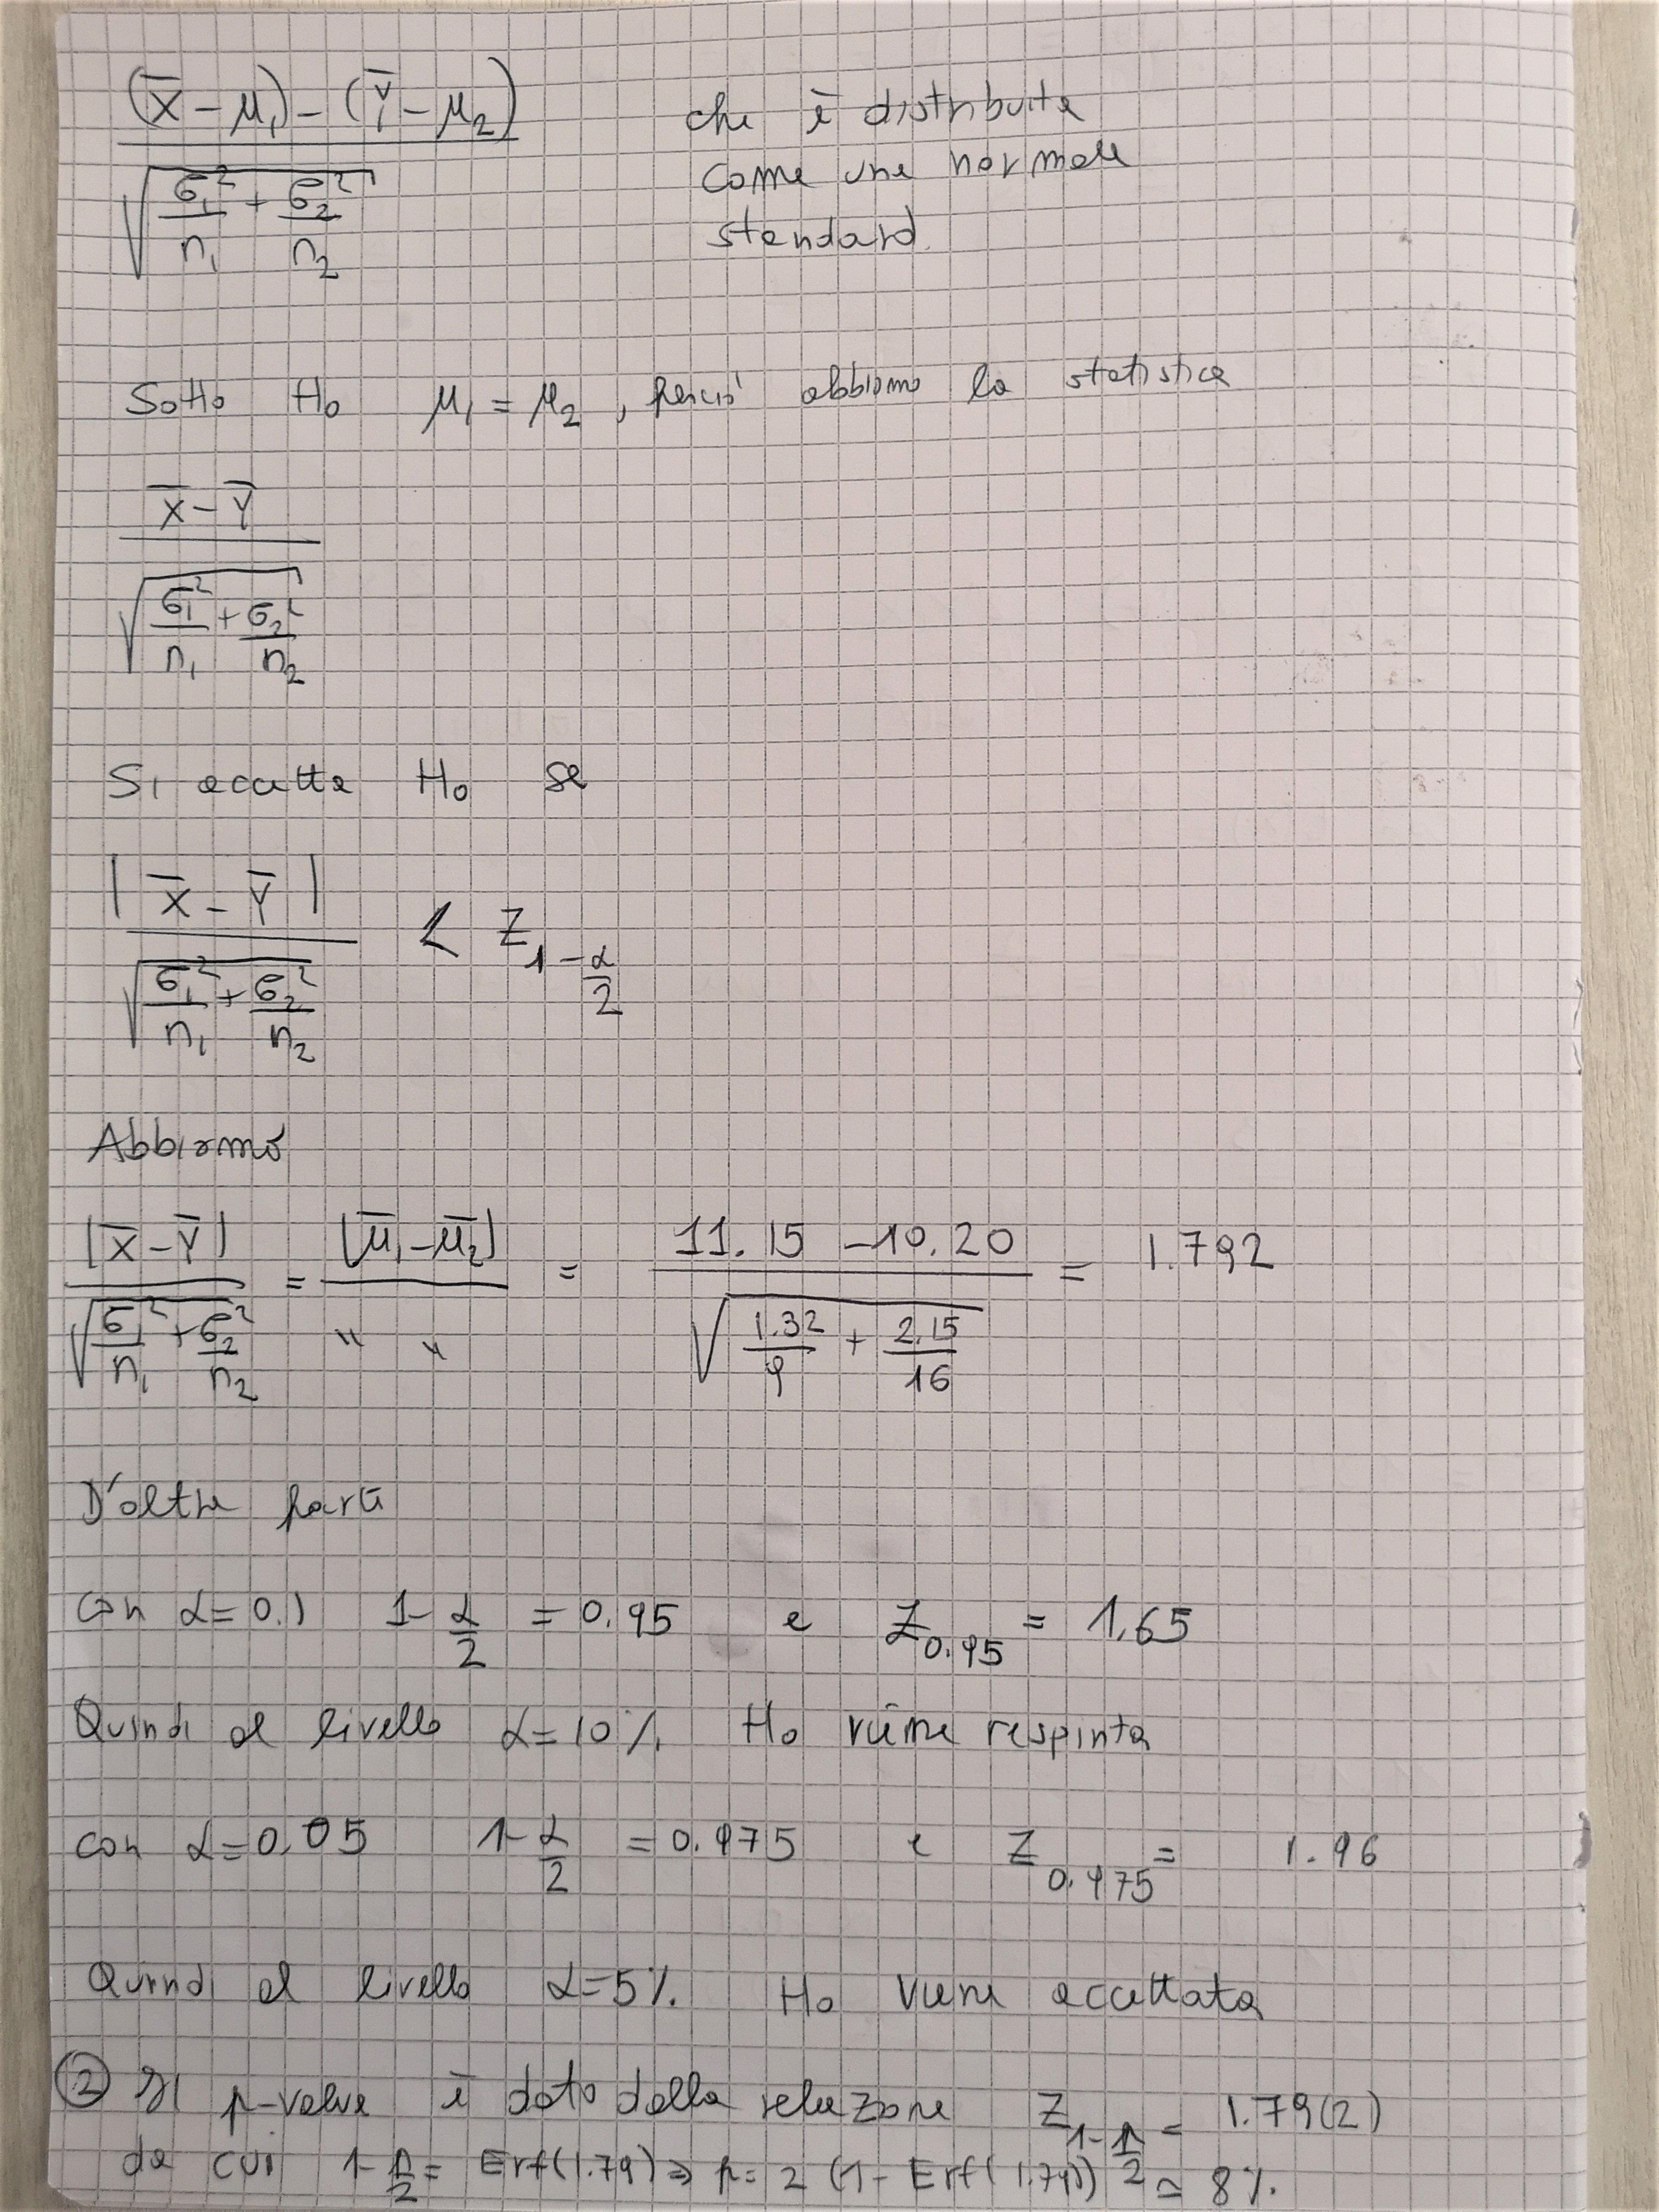 (X̄ - μ₁) - (Ȳ - μ₂) / √(σ₁²/n₁ + σ₂²/n₂) che è distribuita
come una normale
standard.
Sotto H₀ μ₁ = μ₂, perciò abbiamo la statistica
X̄ - Ȳ / √(σ₁²/n₁ + σ₂²/n₂)
Si accetta H₀ se
|X̄ - Ȳ| / √(σ₁²/n₁ + σ₂²/n₂) < Z_{1-α/2}
Abbiamo
|X̄ - Ȳ| / √(σ₁²/n₁ + σ₂²/n₂) = |μ̄₁ - μ̄₂| / " " = 11.15 - 10.20 / √(1.32/9 + 2.15/16) = 1.792
D'altra parte
con α = 0.1 1 - α/2 = 0.95 e Z_{0.95} = 1.65
Quindi al livello α = 10% H₀ viene respinta
con α = 0.05 1 - α/2 = 0.975 e Z_{0.975} = 1.96
Quindi al livello α = 5% H₀ viene accettata
② Il p-value è dato dalla relazione Z_{1-p/2} = 1.79(2)
da cui 1 - p/2 = Erf(1.79) ⇒ p = 2 (1 - Erf(1.79)) ≃ 8%.